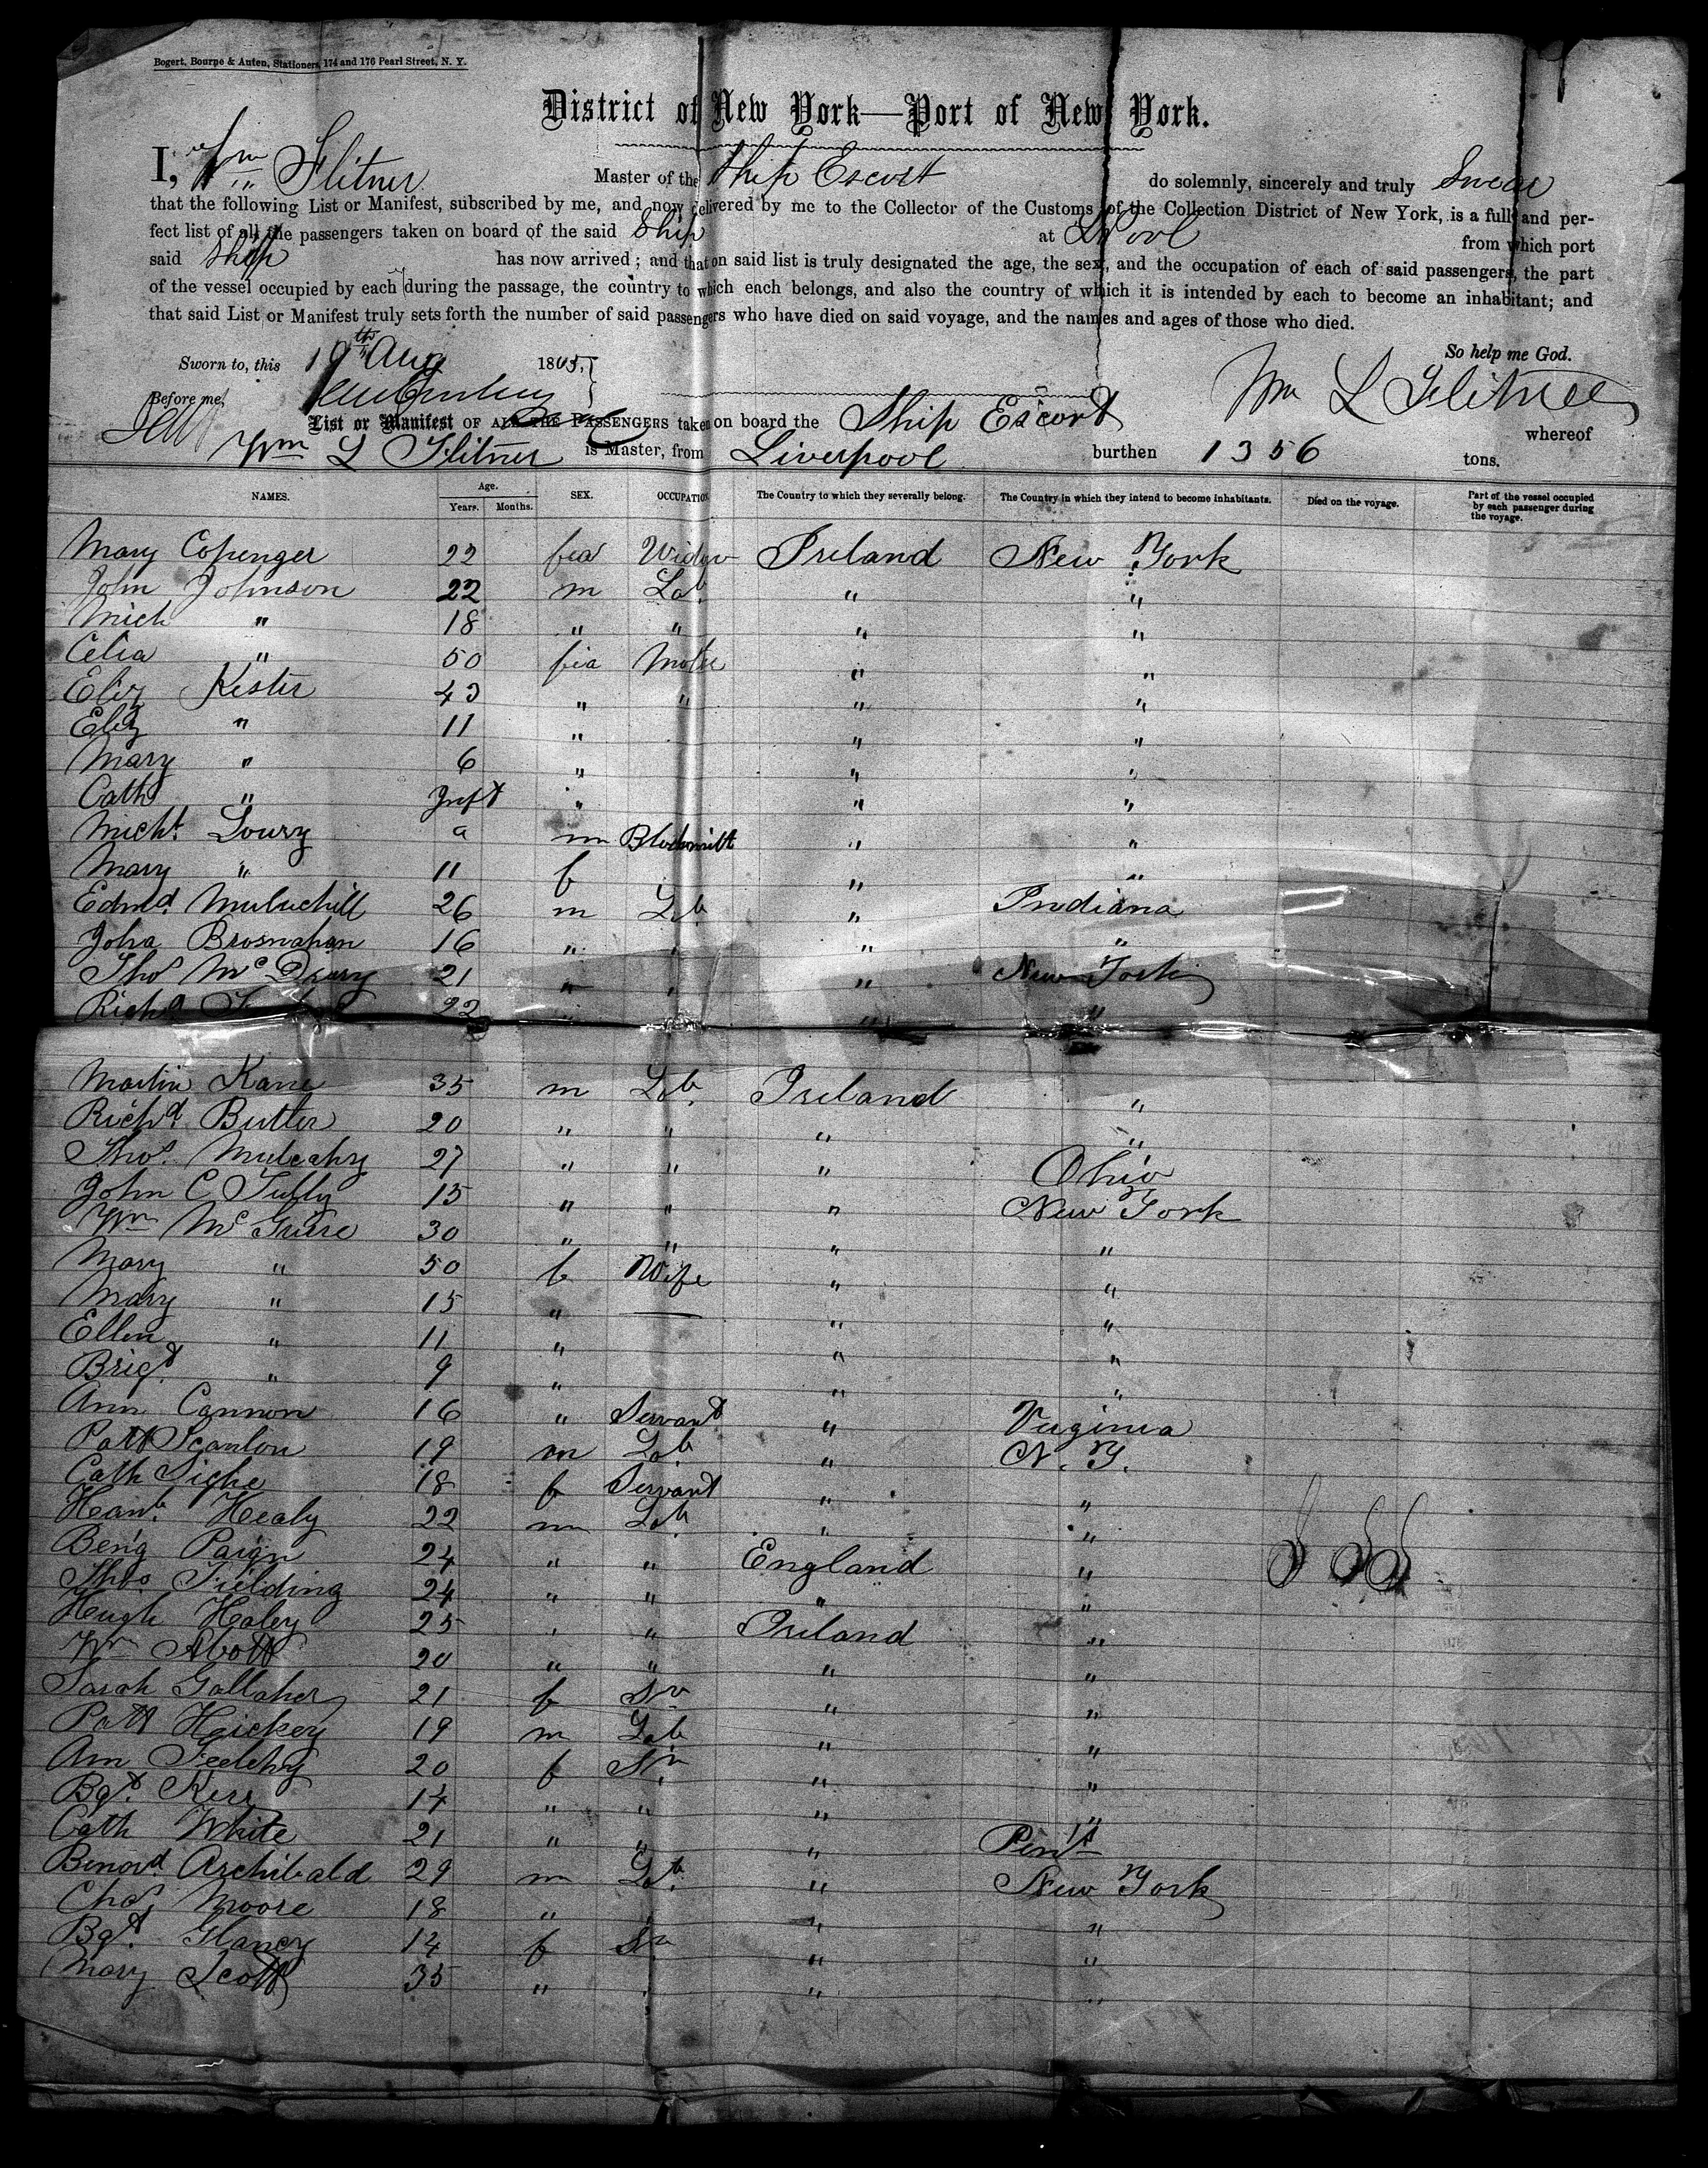 Bogert, Bourne & Auten, Stationers, 174 and 176 Pearl Street, N. Y.
District of New York—Port of New York.
I, Wm Flitner Master of the Ship Escort do solemnly, sincerely and truly Swear
that the following List or Manifest, subscribed by me, and now delivered by me to the Collector of the Customs of the Collection District of New York, is a full and per-
fect list of all the passengers taken on board of the said Ship at LPool from which port
said Ship has now arrived; and that on said list is truly designated the age, the sex, and the occupation of each of said passengers, the part
of the vessel occupied by each during the passage, the country to which each belongs, and also the country of which it is intended by each to become an inhabitant; and
that said List or Manifest truly sets forth the number of said passengers who have died on said voyage, and the names and ages of those who died.
Sworn to, this 19th Aug 1865, So help me God.
Before me, Wm L Flitner
List or Manifest OF ALL THE PASSENGERS taken on board the Ship Escort whereof
Wm L Flitner is Master, from Liverpool burthen 1356 tons.
NAMES. Age. Years. Months. SEX. OCCUPATION The Country to which they severally belong. The Country in which they intend to become inhabitants. Died on the voyage. Part of the vessel occupied by each passenger during the voyage.
Mary Copinger 22 fea Widow Ireland New York
John Johnson 22 m Lab " "
Mich " 18 " " " "
Celia " 50 fea Mothe " "
Eliz Kester 43 " " " "
Eliz " 11 " " "
Mary " 6 " " "
Cath " Inft " " "
Micht. Lowry a m Blcksmith " "
Mary " 11 f " "
Edmd. Muluchill 26 m Lab " Indiana
John Brosnahan 16 " " " "
Thos McDrury 21 " " " New York
Richd 22 " " "
Martin Kane 35 m Lab. Ireland "
Richd Butler 20 " " " "
Thos. Mulcahy 27 " " " Ohio
John C Tully 15 " " " New York
Wm McGuire 30 " " " "
Mary " 50 f Wife " "
Mary " 15 " — " "
Ellen " 11 " " "
Brigt. " 9 " " "
Ann Cannon 16 " Servant " Virginia
Patt Scanlon 19 m Lab " N. Y.
Cath Tighe 18 f Servant " "
Hanb. Healy 22 m Lab " "
Benj Paign 24 " " England "
Thos Fielding 24 " " " "
Hugh Haley 25 " " Ireland "
Wm Abott 20 " " " "
Sarah Gallaher 21 f Sv " "
Patt Hickey 19 m Lab " "
Ann Feelehy 20 f Sv " "
Bgt. Kerr 14 " " " "
Cath White 21 " " "
Benard Archibald 29 m Lab. " New York
Chas Moore 18 " " " "
Bgt. Glancy 14 f Sv " "
Mary Scott 35 " " " "